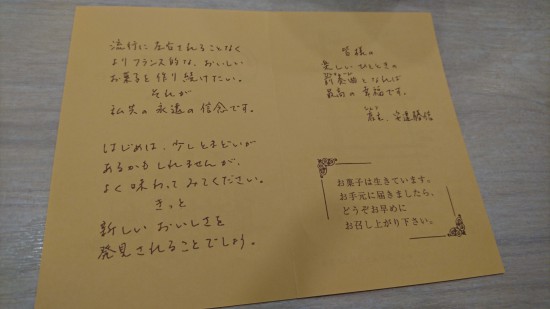 流行に左右されることなく
よりフランス的な、おいしい
お菓子を作り続けたい。
それが
私共の永遠の信念です。
はじめは、少しとまどいが
あるかもしれませんが、
よく味わってみてください。
きっと
新しいおいしさを
発見されることでしょう。
皆様の
楽しいひとときの
前奏曲となれば
最高の幸福です。
お菓子は生きています。
お手元に届きましたら、
どうぞお早めに
お召し上がり下さい。